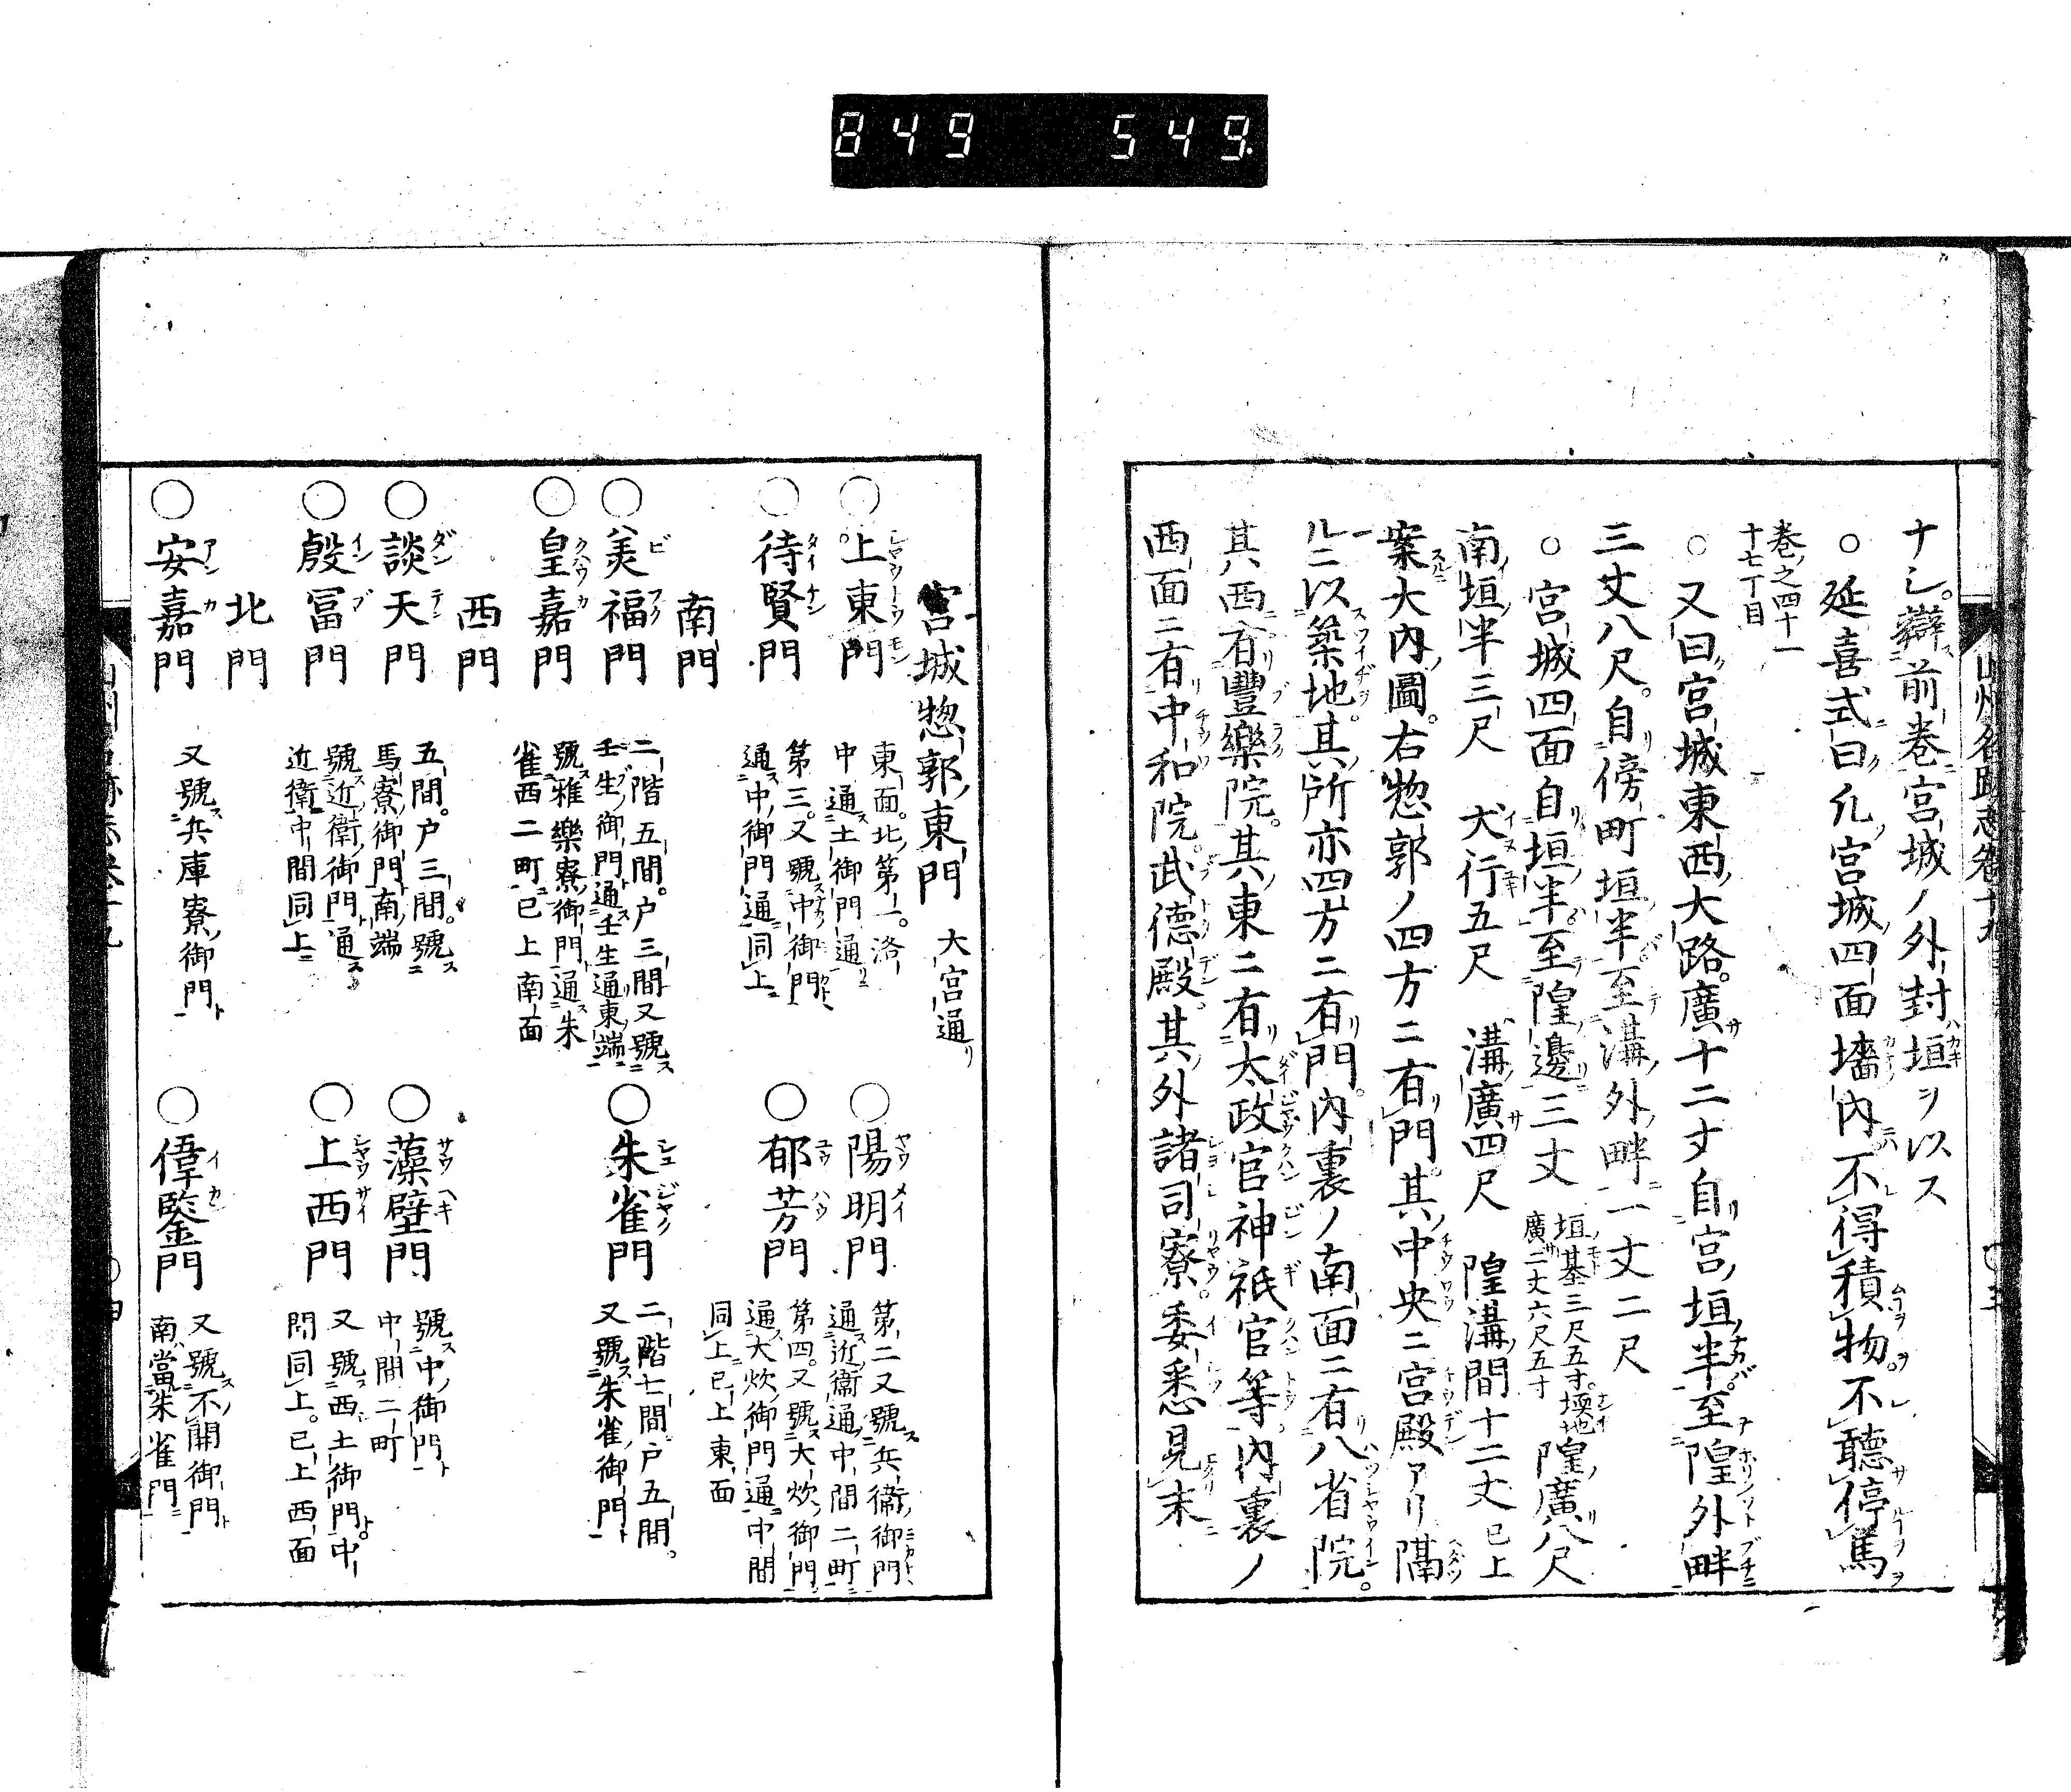 849 549.
山州名跡志卷十九 ○三
ナシ。辯前卷宮城ノ外封垣ヲ以ス
○延喜式曰凡宮城四面墻內不得積物。不聽停馬
卷之四十一
十七丁目
○又曰宮城東西大路。廣十二丈自宮垣半至隍外畔
三丈八尺。自傍町垣半至溝外畔一丈二尺
○宮城四面自垣半至隍邊三丈 垣基三尺五寸。壖地
廣二丈六尺五寸 隍廣八尺
南垣半三尺 犬行五尺 溝廣四尺 隍溝間十二丈 已上
案大內圖。右惣郭ノ四方ニ有門。其中央ニ宮殿アリ隔
ルニ以築地。其所亦四方ニ有門。內裏ノ南面ニ有八省院。
其西有豐樂院。其東ニ有太政官神祇官等。內裏ノ
西面ニ有中和院。武德殿。其外諸司寮。委悉見末
宮城惣郭東門 大宮通
○上東門 東面。北第一。洛
中通土御門通
○陽明門 第二又號兵衞御門
通近衞通中間二町
○待賢門 第三。又號中御門
通中御門通同上
○郁芳門 第四。又號大炊御門
通大炊御門通中間
同上已上東面
南門
○美福門 二階五間。戶三間又號
壬生御門通壬生通東端
○朱雀門 二階七間戶五間。
又號朱雀御門
○皇嘉門 號雅樂寮御門通朱
雀西二町已上南面
西門
○談天門 五間。戶三間。號
馬寮御門南端
○藻壁門 號中御門
中間二町
○殷冨門 號近衞御門通
近衞中間同上
○上西門 又號西土御門。中
間同上。已上西面
北門
○安嘉門 又號兵庫寮御門
○偉鑒門 又號不開御門
南當朱雀門